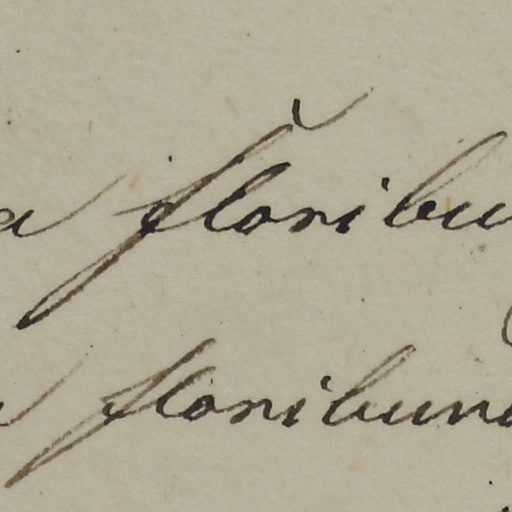 a floribu
floribund